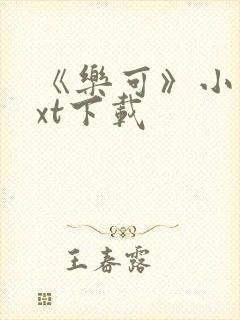 《樂可》小
xt下載
王春露